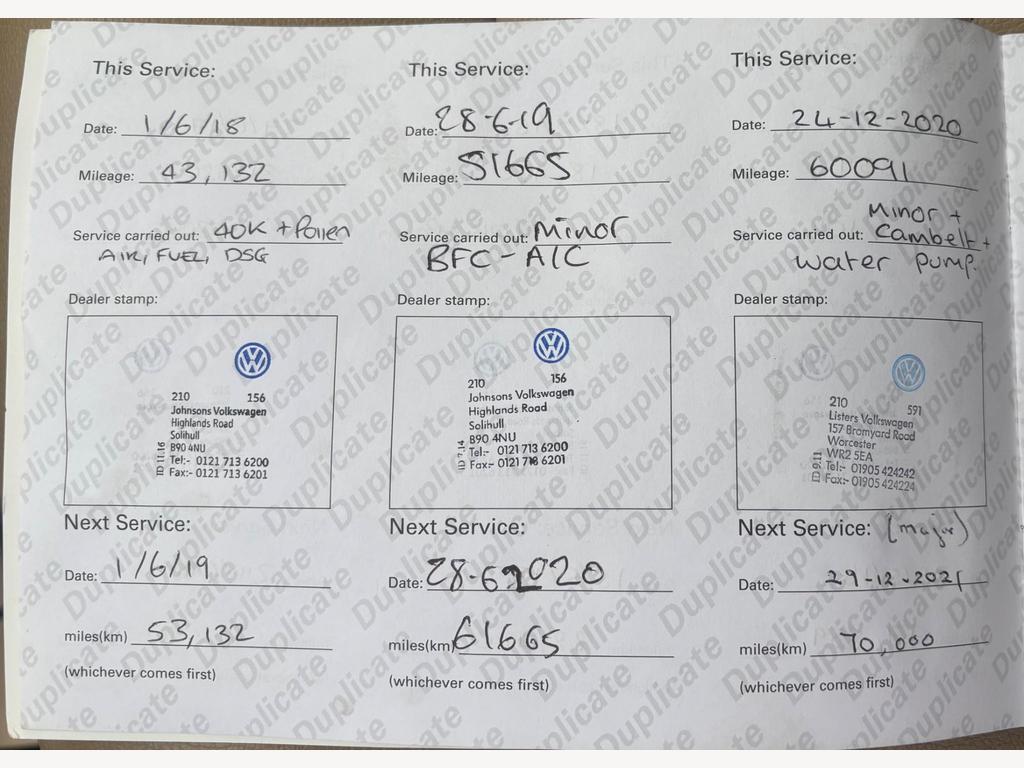 This Service:
Date: 1/6/18
Mileage: 43,132
Service carried out: 40K + Pollen
AIR, FUEL, DSG
Dealer stamp:
210 156
Johnsons Volkswagen
Highlands Road
Solihull
B90 4NU
Tel:- 0121 713 6200
Fax:- 0121 713 6201
ID 11.16
Next Service:
Date: 1/6/19
miles(km) 53,132
(whichever comes first)
This Service:
Date: 28-6-19
Mileage: 51665
Service carried out: Minor
BFC - A/C
Dealer stamp:
210 156
Johnsons Volkswagen
Highlands Road
Solihull
B90 4NU
Tel:- 0121 713 6200
Fax:- 0121 713 6201
ID 7.14
Next Service:
Date: 28-62020
miles(km) 61665
(whichever comes first)
This Service:
Date: 24-12-2020
Mileage: 60091
Service carried out: Minor +
Cambelt +
water pump.
Dealer stamp:
210 591
Listers Volkswagen
157 Bromyard Road
Worcester
WR2 5EA
Tel:- 01905 424242
Fax:- 01905 424224
ID 9.11
Next Service: (major)
Date: 29-12-2021
miles(km) 70,000
(whichever comes first)
Duplicate